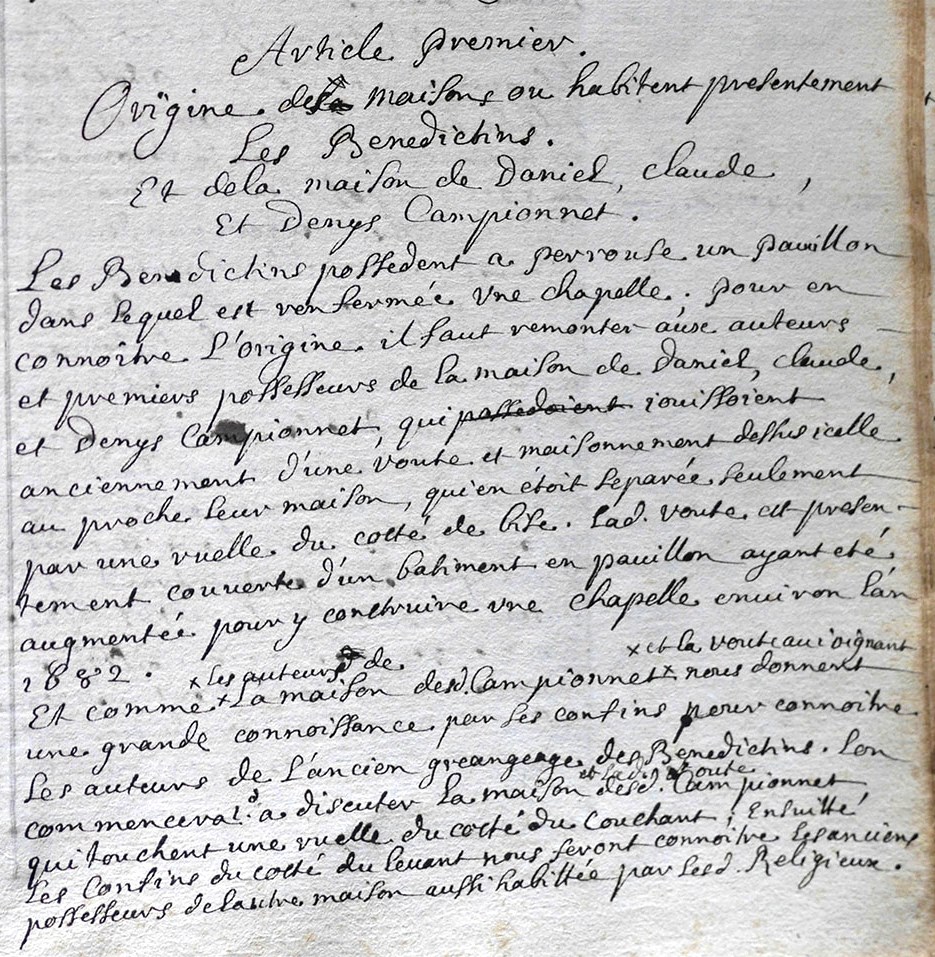 Article premier.
Origine des maisons ou habitent presentement
Les Benedictins.
Et dela maison de Daniel, claude,
Et Denys Campionnet.
Les Benedictins possedent a perrouse un pavillon
dans lequel est renfermée vne chapelle. pour en
connoître L'origine il faut remonter aux auteurs
et premiers possesseurs de la maison de Daniel, claude,
et Denys Campionnet, qui possedoient iouissoient
anciennement d'une voute et maisonnement dessus icelle
au proche leur maison, qu'en étoit separée seulement
par une ruelle du costé de bise. Lad. voute est presen-
tement couverte d'un batiment en pavillon ayant eté
augmentée pour y construire vne chapelle environ l'an
1682.
x Les auteurs de x et la voute au ioignant
Et comme x La maison desd. Campionnet x nous donnent
une grande connoissance par les confins pour connoitre
Les auteurs de L'ancien greangeage des Benedictins. Lon
commencera 1.º a discuter la maison desd. Campionnet
et lad. voute
qui touchent une ruelle du costé du Couchant; Ensuitte
Les confins du costé du levant nous feront connoitre les anciens
possesseurs delautre maison aussi habittée par lesd. Religieux.